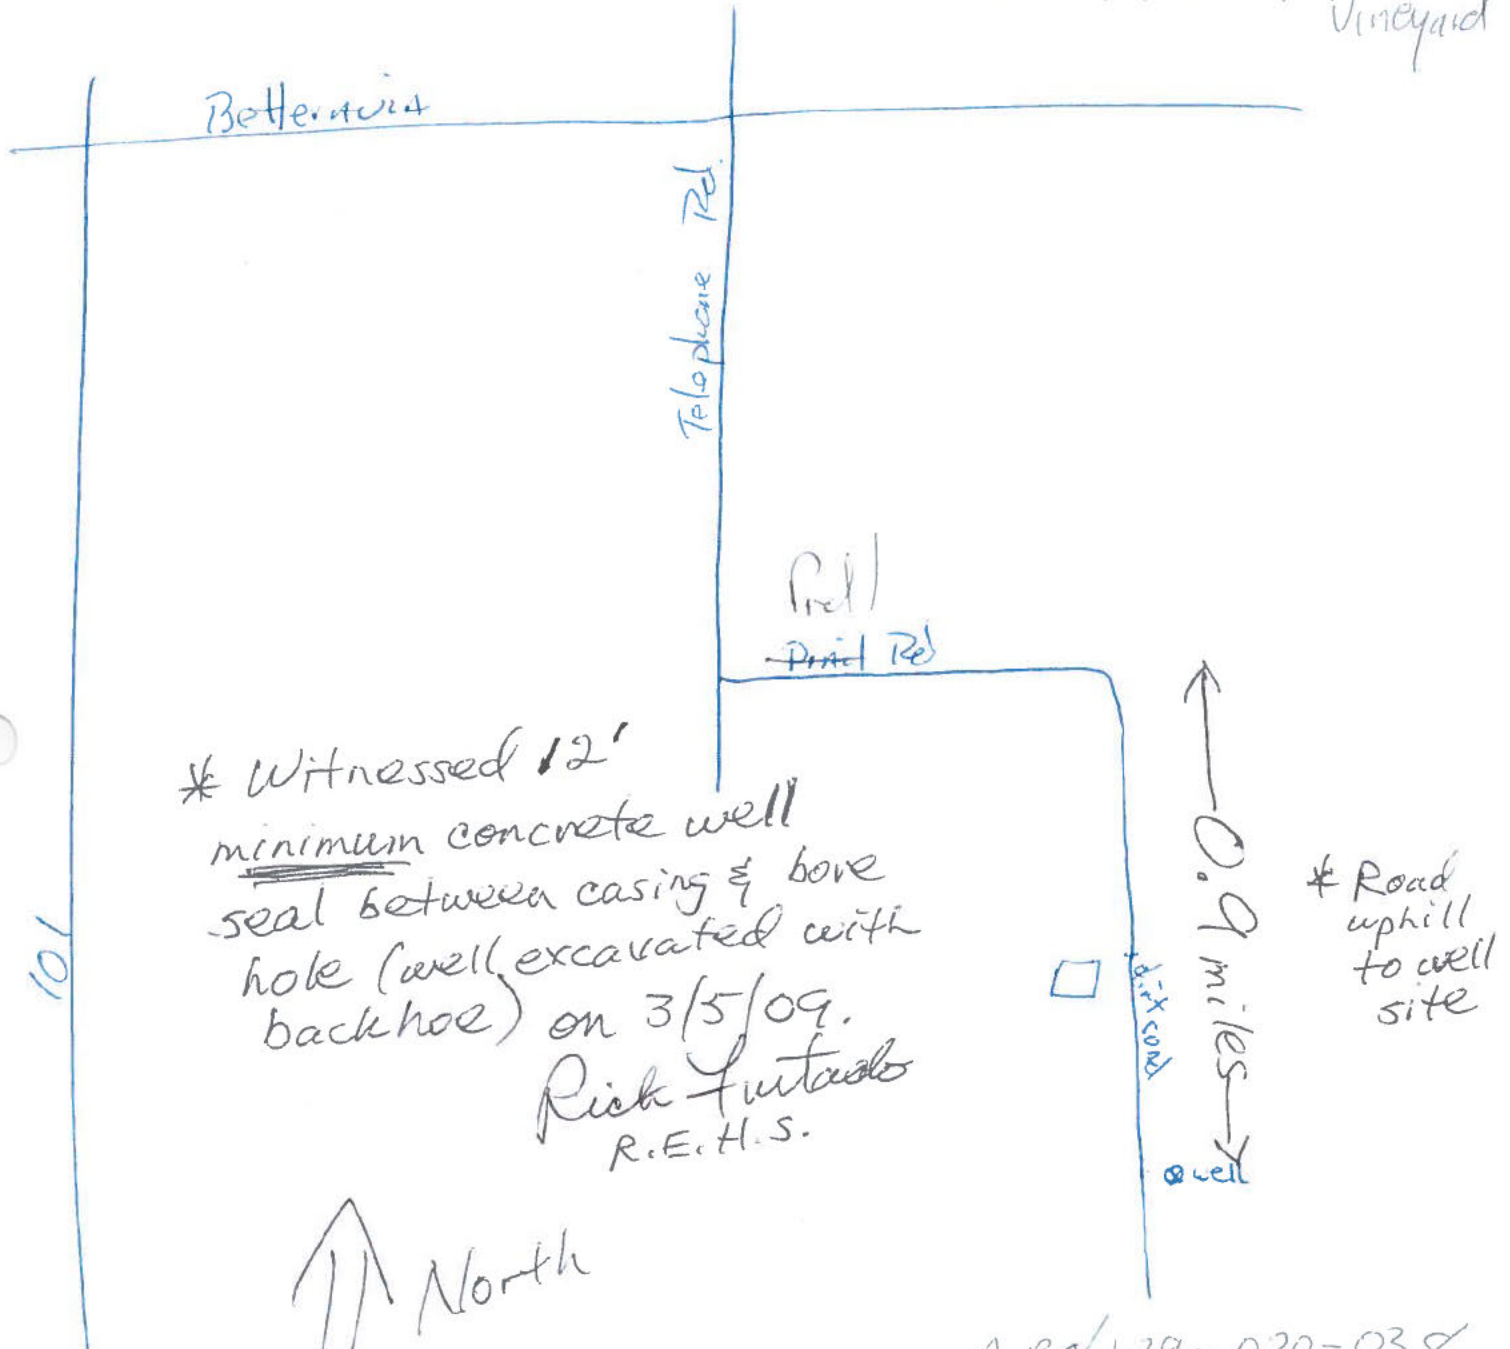 Vineyard
Betteravia
Telephone Rd.
Prell
Rd
* Witnessed 12'
minimum concrete well
seal between casing & bore
hole (well excavated with
backhoe) on 3/5/09.
Rick Furtado
R.E.H.S.
101
0.9 miles
* Road
uphill
to well
site
dirt road
well
North